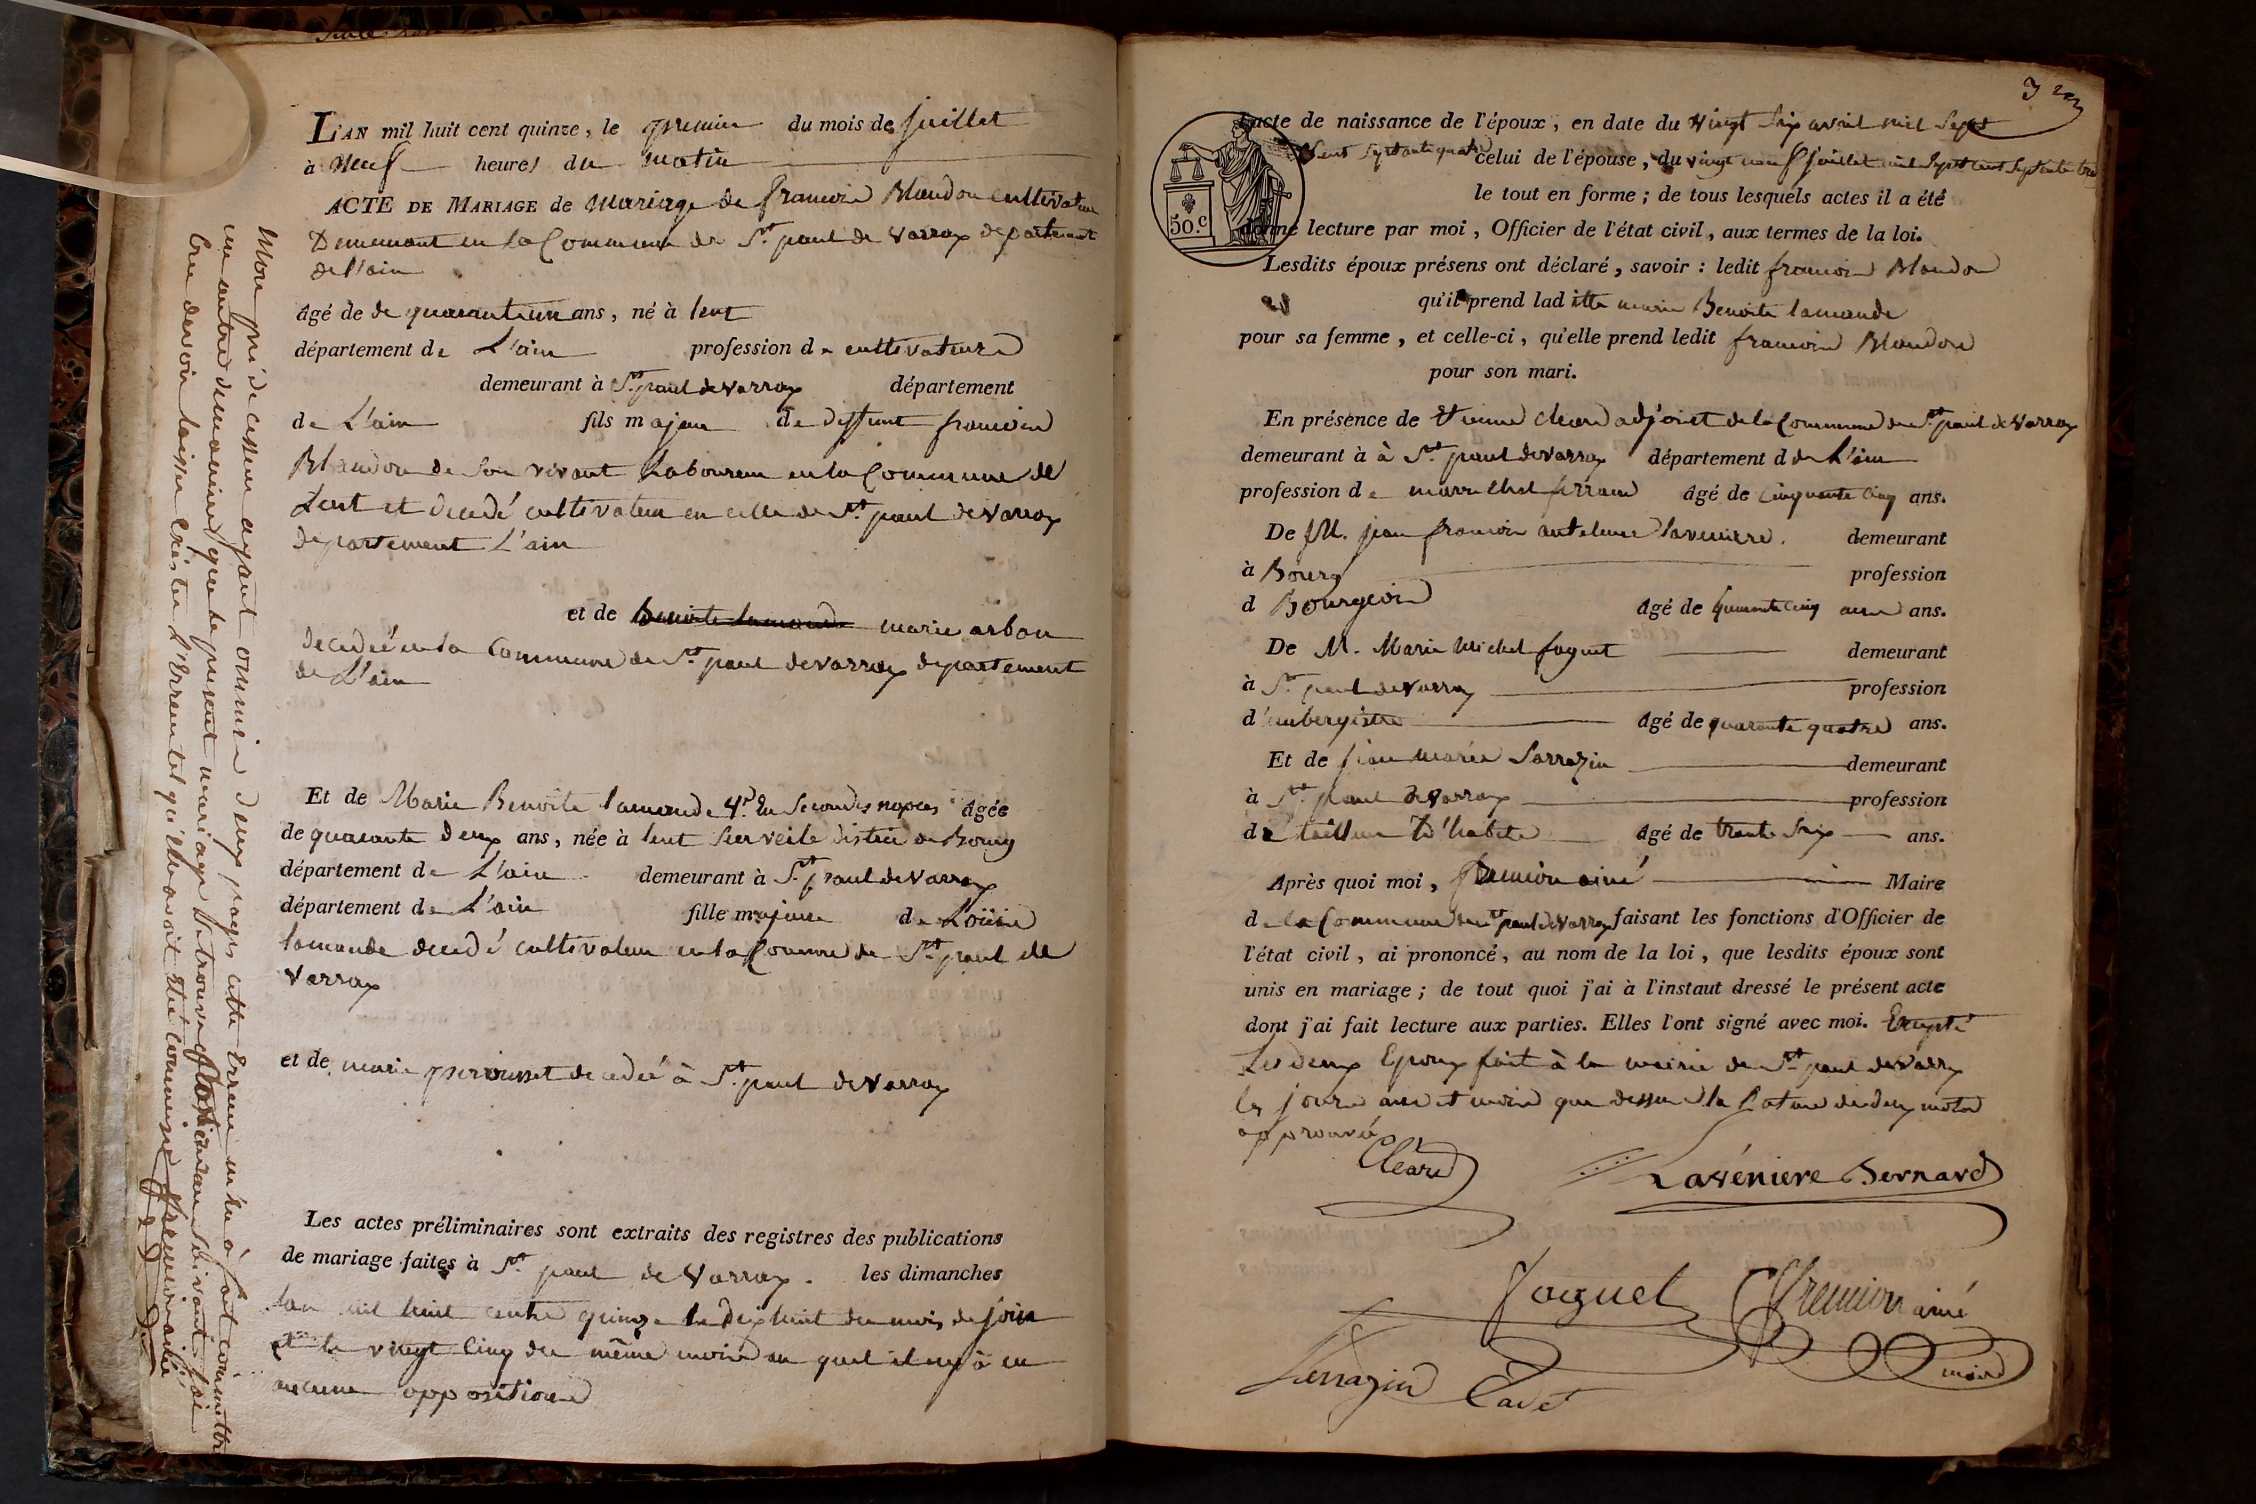 L'AN mil huit cent quinze, le premier du mois de Juillet
à neuf heures du matin
ACTE DE MARIAGE de Mariage de francois Blandon cultivateur
Demeurant en la Commune de St. paul de Varrax departement
de l'ain
âgé de de quarante un ans, né à lent
département de L'ain profession de cultivateur
demeurant à St. paul de varrax département
de L'ain fils majeur de deffunt francois
Blandon de son vivant Laboureur en la Commune de
Lent et decedé cultivateur en celle de St. paul de Varrax
departement L'ain
et de marie arbon
decedée en la Commune de St. paul de varrax departement
de L'ain
Et de Marie Benoite lamande en Secondes nopces âgée
de quarante deux ans, née à lent district de Bourg
département de L'ain demeurant à St. paul de Varrax
département de L'ain fille majeure de Loüis
lamande decedé cultivateur en la Commune de St. paul de
Varrax
et de marie perousset decedée à St. paul de Varrax
Les actes préliminaires sont extraits des registres des publications
de mariage faites à St. paul de Varrax. les dimanches
lan mil huit cents quinze le dix huit du mois de join
et le vingt cinq du même mois au quel il n'y a eu
aucune oppositions
Mon prédécesseur ayant ommis deux pages cette Erreur m'en a fait commettre
une autre de maniere que le present mariage se trouve
Cru devoir laisser Exister l'Erreur tel qu'elle avoit été commise fremion ainé
3
L'acte de naissance de l'époux, en date du vingt six avril mil sept
Cent septante quatre celui de l'épouse, du vingt neuf Juillet mil sept cent septente trois
le tout en forme; de tous lesquels actes il a été
50.c
donné lecture par moi, Officier de l'état civil, aux termes de la loi.
Lesdits époux présens ont déclaré, savoir: ledit francois Blandon
qu'il prend laditte marie Benoite lamande
pour sa femme, et celle-ci, qu'elle prend ledit francois Blandon
pour son mari.
En présence de Etienne Cleard adjoint de la Commune de St. paul de Varrax
demeurant à à St. paul de varrax département d de L'ain
profession de marechal ferrand âgé de cinquante cinq ans.
De M. jean francois antelme laveniere. demeurant
à Bourg profession
d Bourgeois âgé de quarante cinq ans ans.
De M. Marie Michel faguet demeurant
à St. paul de varrax profession
d'aubergiste âgé de quarante quatre ans.
Et de jean marie Sarrazin demeurant
à St. paul de Varrax profession
de tailleur D'habits âgé de trente six ans.
Après quoi moi, fremion ainé Maire
de la Commune de St. paul de Varrax faisant les fonctions d'Officier de
l'état civil, ai prononcé, au nom de la loi, que lesdits époux sont
unis en mariage; de tout quoi j'ai à l'instaut dressé le présent acte
dont j'ai fait lecture aux parties. Elles l'ont signé avec moi. Excepté
Les deux Epoux fait à la mairie de St. paul de Varrax
les jours an et mois que dessus la rature de deux mots
approuvée
Cleard
Lavéniere Bernard
faguet fremion ainé
maire
Sarrazin Cadet